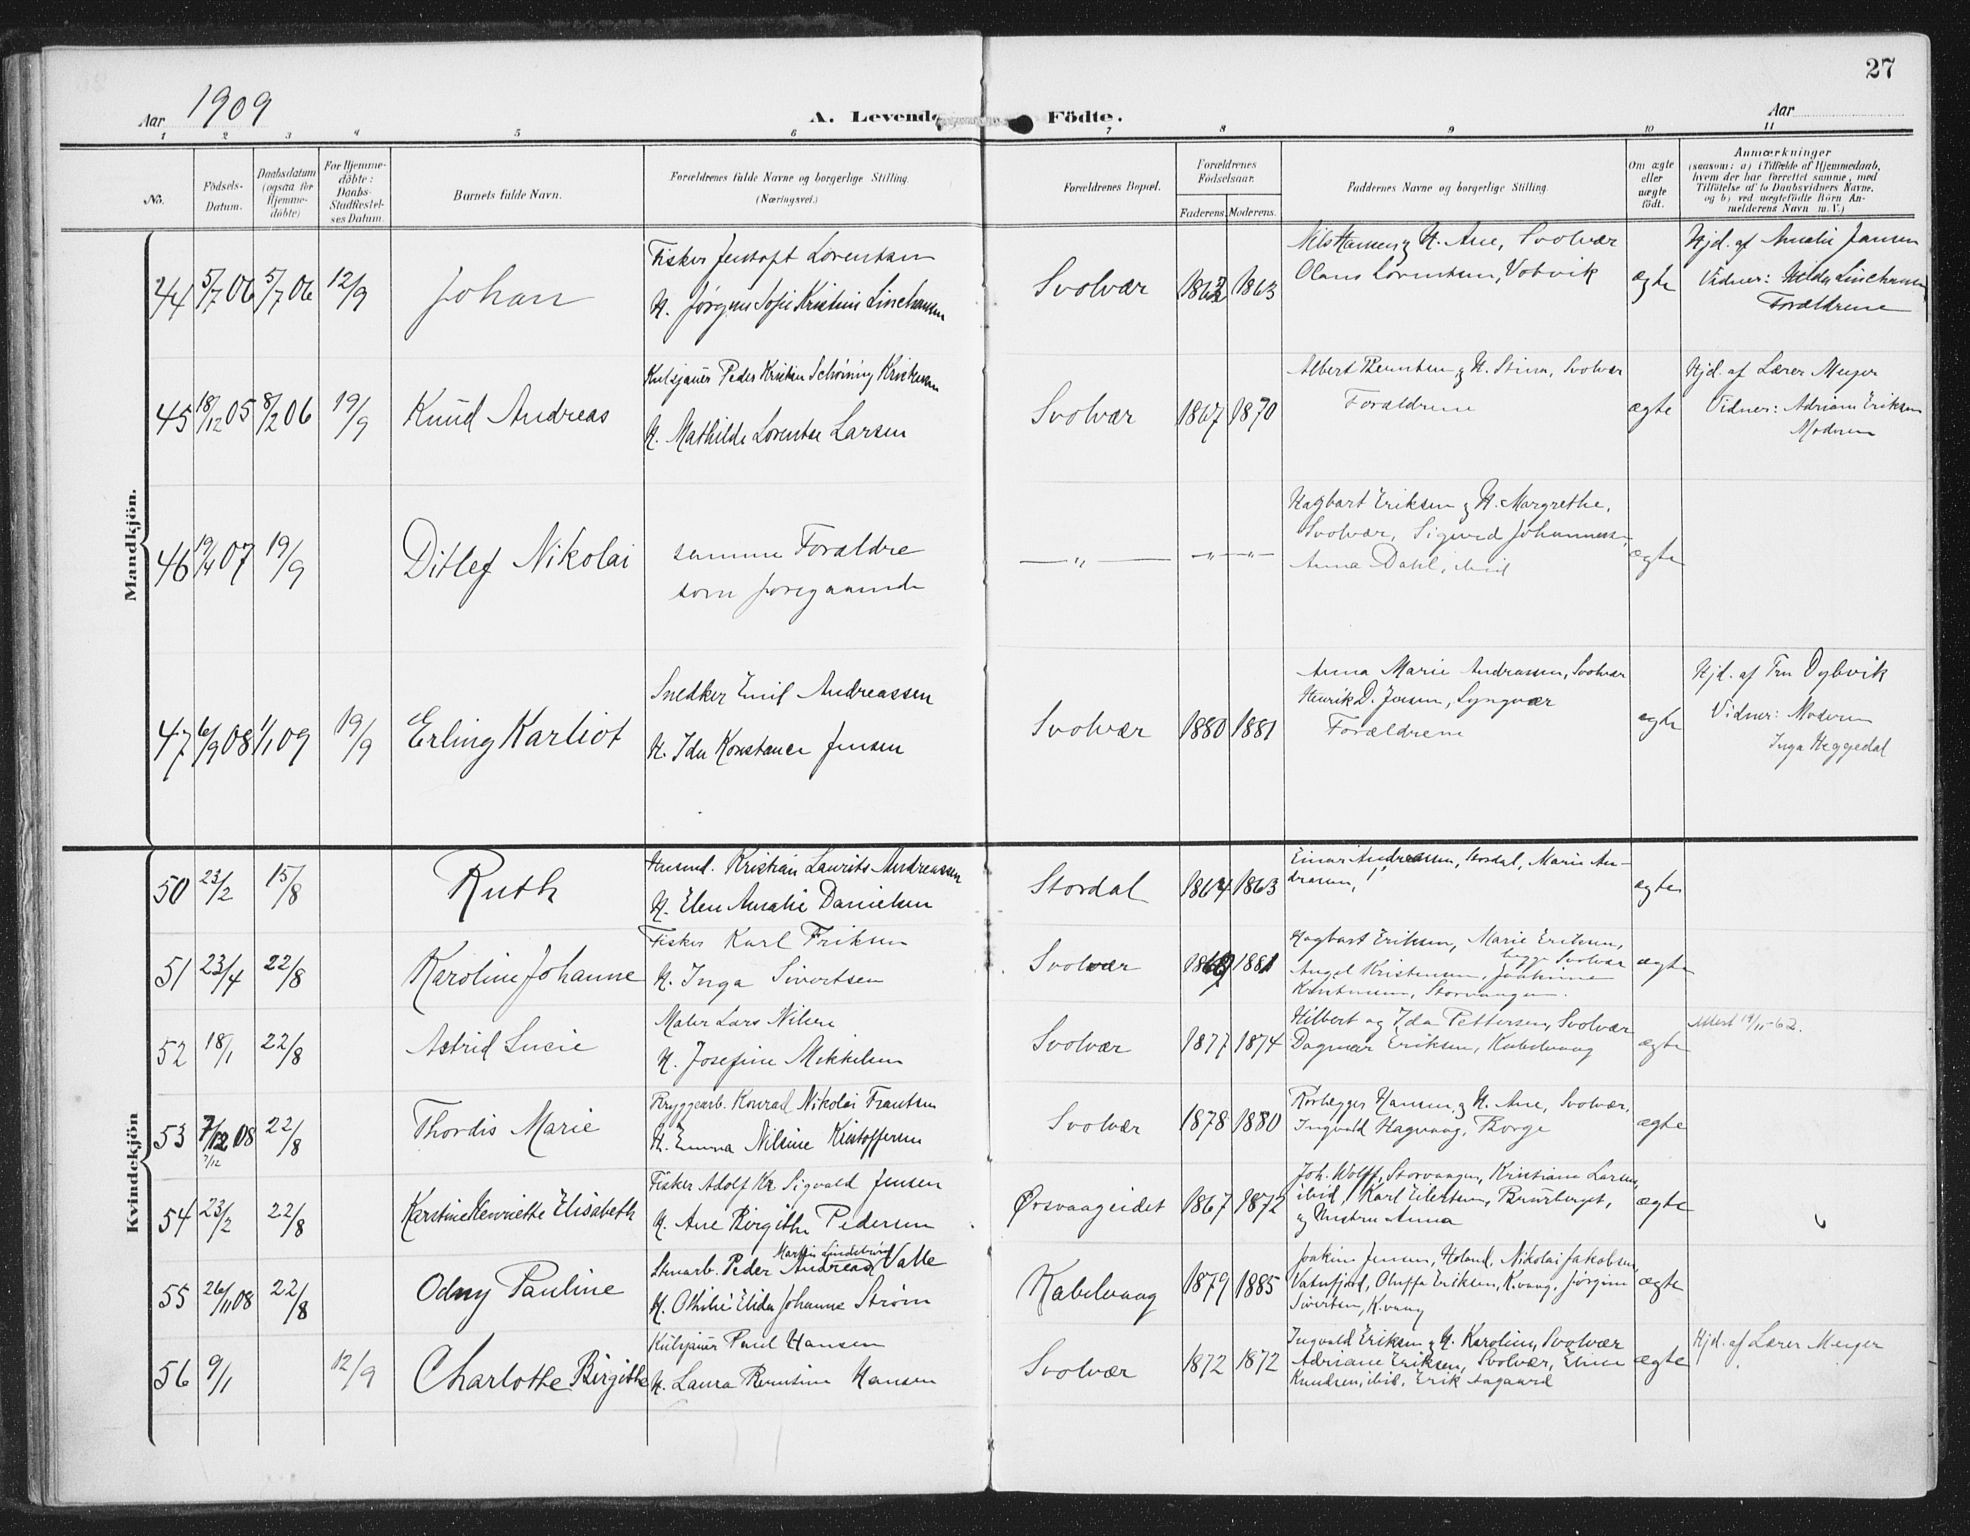 27
Aar 1909
A. Levende Födte.
Aar
1 2 3 4 5 6 7 8 9 10 11
No.
Födsels-
Datum.
Daabsdatum
(ogsaa for
Hjemme-
döbte)
For Hjemme-
döbte:
Daabs-
Stadfæstel-
ses Datum.
Barnets fulde Navn.
Forældrenes fulde Navne og borgerlige Stilling
(Næringsvei.)
Forældrenes Bopæl.
Forældrenes
Födselsaar.
Faderens. Moderens.
Faddernes Navne og borgerlige Stilling
Om ægte
eller
uægte
födt.
Anmærkninger
(saasom: a) i Tilfælde af Hjemmedaab,
hvem der har forrettet samme, med
Tilföielse af to Daabsvidners Navne,
og b) ved uægtefödte Börn An-
melderens Navn m. V.)
Mandkjön.
44 5/7 06 5/7 06 12/9 Johan
Fisker Jentoft Lorentsen
H. Jørgine Sofie Kristine Linehansen
Svolvær 1863 1863
Nils Hansen og H. Ane, Svolvær
Olaus Lorentsen, Votvik
ægte
Hjd. af Amalie Jansen
Vidner: Hilda Linehansen
Forældrene
45 18/12 05 8/2 06 19/9 Knud Andreas
Kulsjauer Peder Kristian Schöning Kristensen
H. Mathilde Lorentse Larsen
Svolvær 1867 1870
Albert Berntsen og H. Stina, Svolvær
Forældrene
ægte
Hjd. af Lærer Meyer
Vidner: Adriane Eriksen
Moderen
46 19/4 07 19/9 Ditlef Nikolai
samme Forældre
som foregaaende
— „ — — „ — „ —
Hagbart Eriksen og H. Margrethe,
Svolvær, Sigurd Johannessen,
Anna Dahl, ibid
ægte
47 6/9 08 1/1 09 19/9 Erling Karliot
Snedker Emil Andreassen
H. Ida Konstance Jensen
Svolvær 1880 1881
Anna Marie Andreassen, Svolvær
Henrik D. Jensen, Lyngvær
Forældrene
ægte
Hjd. af Fru Dybvik
Vidner: Moderen
Inga Heggedal
Kvindekjön
50 23/2 15/8 Ruth
Husmd. Kristian Laurits Andreassen
H. Elen Amalie Danielsen
Stordal 1864 1863
Einar Andreassen, Stordal, Marie An-
dreassen, "
ægte
51 23/4 22/8 Karoline Johanne
Fisker Karl Eriksen
H. Inga Sivertsen
Svolvær 1881
Hagbart Eriksen, Marie Eriksen,
begge Svolvær
Angel Kristensen, Joakimine
Kristensen, Storvaagan.
ægte
52 18/1 22/8 Astrid Lucie
Maler Lars Nilsen
H. Josefine Mikkelsen
Svolvær 1877 1874
Hilbert og Ida Pettersen, Svolvær
Dagmar Eriksen, Kabelvaag
ægte
Attest 19/11-62.
53 7/12 08 22/8 Thordis Marie
7/12
Bryggearb. Konrad Nikolai Frantsen
H. Emma Nilsine Kristoffersen
Svolvær 1878 1880
Rørlegger Hansen og H. Ane, Svolvær,
Ingvald Hagvaag, Borge
ægte
54 23/2 22/8 Karstine Henriette Elisabeth
Fisker Adolf Kr Sigvald Jensen
H. Ane Birgithe Pedersen
Ørsvaageidet 1867 1872
Joh. Wolff, Storvaagan, Kristiane Larsen,
ibid, Karl Eilertsen, Brurberget,
og Hustru Anna
ægte
55 26/11 08 22/8 Odny Pauline
Stenarb. Peder Andreas Valle
H. Othilie Elida Johanne Strøm
Kabelvaag 1879 1885
Joakim Jensen, Holand, Nikolai Jakobsen,
Vatnfjord, Oluffa Eriksen, K.vaag, Jørgine
Sivertsen, K.vaag
ægte
56 9/1 12/9 Charlotte Birgithe
Kulsjauer Paul Hansen
H. Laura Berntine Hansen
Svolvær 1872 1872
Ingvald Eriksen og H. Karoline, Svolvær
Adriane Eriksen, Svolvær, Eline
Knudsen, ibid, Erik Aagaard
ægte
Hjd. af Lærer Meyer